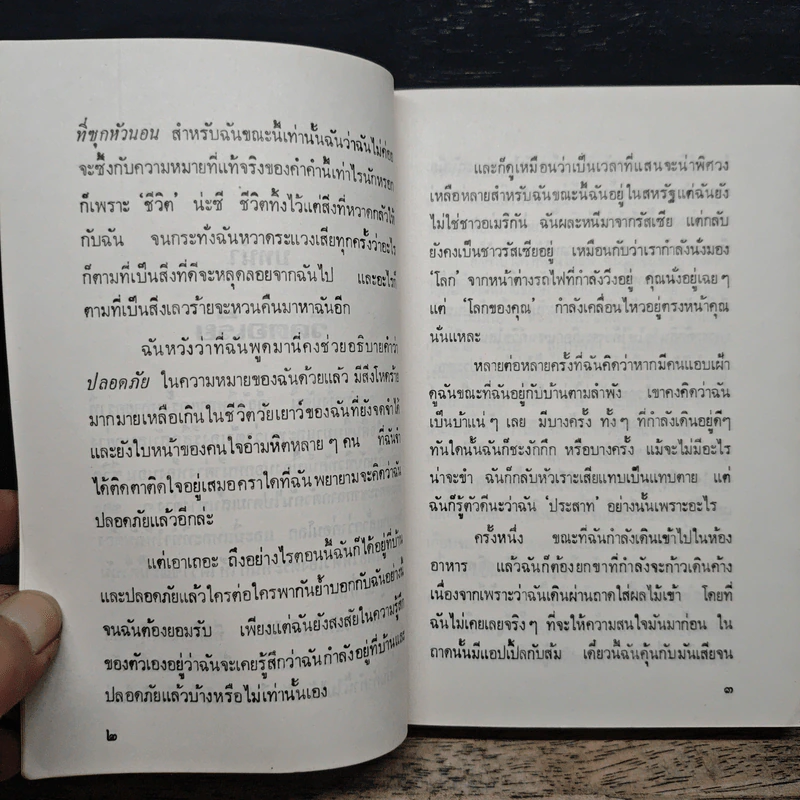 ที่ซุกหัวนอน สำหรับฉันขณะนี้เท่านั้นฉันว่าฉันไม่ค่อย
จะซึ้งกับความหมายที่แท้จริงของคำคำนี้เท่าไรนักหรอก
ก็เพราะ ‘ชีวิต’ น่ะซี ชีวิตทิ้งไว้แต่สิ่งที่หวาดกลัวให้
กับฉัน จนกระทั่งฉันหวาดระแวงเสียทุกครั้งว่าอะไร
ก็ตามที่เป็นสิ่งที่ดีจะหลุดลอยจากฉันไป และอะไรก็
ตามที่เป็นสิ่งเลวร้ายจะหวนคืนมาหาฉันอีก
ฉันหวังว่าที่ฉันพูดมานี่คงช่วยอธิบายคำว่า
ปลอดภัย ในความหมายของฉันด้วยแล้ว มีสิ่งโหดร้าย
มากมายเหลือเกินในชีวิตวัยเยาว์ของฉันที่ยังจดจำได้
และยังใบหน้าของคนใจอำมหิตหลาย ๆ คน ที่ฉัน
ได้ติดตาติดใจอยู่เสมอคราใดที่ฉันพยายามจะคิดว่าฉัน
ปลอดภัยแล้วอีกล่ะ
แต่เอาเถอะ ถึงอย่างไรตอนนี้ฉันก็ได้อยู่ที่บ้าน
และปลอดภัยแล้วใครต่อใครพากันย้ำบอกกับฉันอย่างนี้
จนฉันต้องยอมรับ เพียงแต่ฉันยังสงสัยในความรู้สึก
ของตัวเองอยู่ว่าฉันจะเคยรู้สึกว่าฉันกำลังอยู่ที่บ้านและ
ปลอดภัยแล้วบ้างหรือไม่เท่านั้นเอง
๒
และก็ดูเหมือนว่าเป็นเวลาที่แสนจะน่าพิศวง
เหลือหลายสำหรับฉันขณะนี้ฉันอยู่ในสหรัฐแต่ฉันยัง
ไม่ใช่ชาวอเมริกัน ฉันผละหนีมาจากรัสเซีย แต่กลับ
ยังคงเป็นชาวรัสเซียอยู่ เหมือนกับว่าเรากำลังนั่งมอง
‘โลก’ จากหน้าต่างรถไฟที่กำลังวิ่งอยู่ คุณนั่งอยู่เฉย ๆ
แต่ ‘โลกของคุณ’ กำลังเคลื่อนไหวอยู่ตรงหน้าคุณ
นั่นแหละ
หลายต่อหลายครั้งที่ฉันคิดว่าหากมีคนแอบเฝ้า
ดูฉันขณะที่ฉันอยู่กับบ้านตามลำพัง เขาคงคิดว่าฉัน
เป็นบ้าแน่ ๆ เลย มีบางครั้ง ทั้ง ๆ ที่กำลังเดินอยู่ดีๆ
ทันใดนั้นฉันก็ชะงักกึก หรือบางครั้ง แม้จะไม่มีอะไร
น่าจะขำ ฉันก็กลับหัวเราะเสียแทบเป็นแทบตาย แต่
ฉันก็รู้ตัวดีนะว่าฉัน ‘ประสาท’ อย่างนั้นเพราะอะไร
ครั้งหนึ่ง ขณะที่ฉันกำลังเดินเข้าไปในห้อง
อาหาร แล้วฉันก็ต้องยกขาที่กำลังจะก้าวเดินค้าง
เนื่องจากเพราะว่าฉันเดินผ่านถาดใส่ผลไม้เข้า โดยที่
ฉันไม่เคยเลยจริง ๆ ที่จะให้ความสนใจมันมาก่อน ใน
ถาดนั้นมีแอปเปิ้ลกับส้ม เดี๋ยวนี้ฉันคุ้นกับมันเสียจน
๓